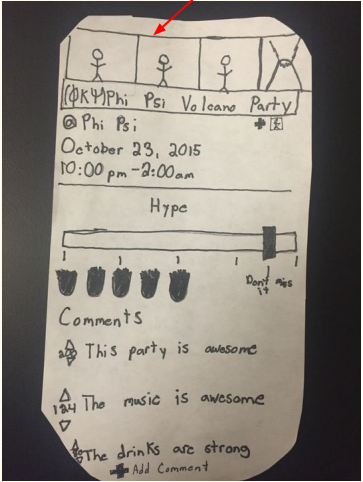 (ΦKΨ)Phi Psi Volcano Party
@ Phi Psi
October 23, 2015
10:00 pm - 2:00am
Hype
Don't miss
it
Comments
This party is awesome
124 The music is awesome
The drinks are strong
Add Comment